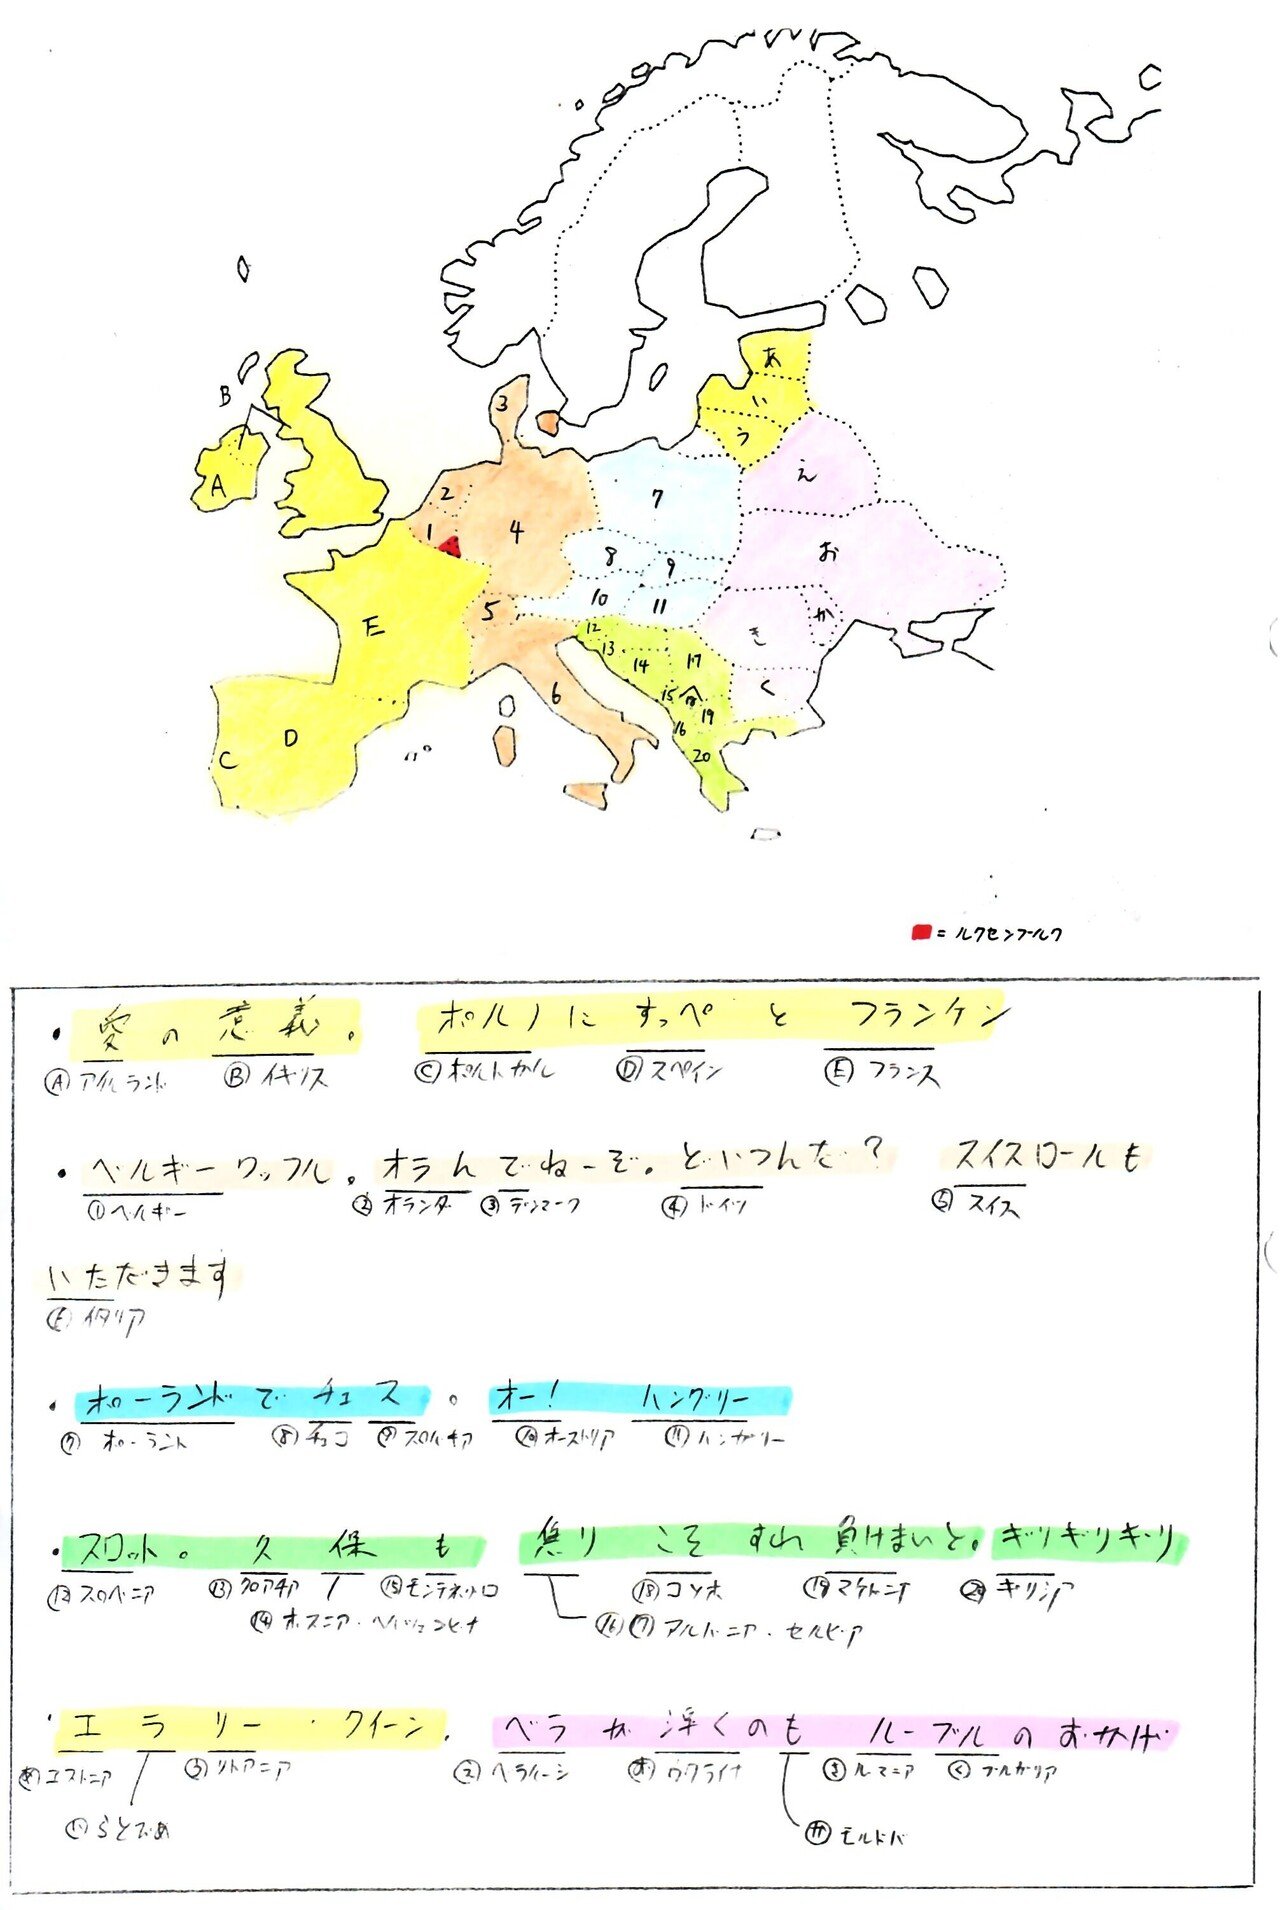 あ
い
B
3
う
え
2
A
7
1
4
お
8
9
10
11
5
か
E
12
き
13
14
17
く
6
15
18
19
D
16
C
20
=ルクセンブルク
・愛の意義。 ポルノに すっぺ と フランケン
Ⓐアイルランド Ⓑイギリス Ⓒポルトガル Ⓓスペイン Ⓔフランス
・ベルギーワッフル。オランでねーぞ。どいつんだ? スイスロールも
①ベルギー ②オランダ ③デンマーク ④ドイツ ⑤スイス
いただきます
イタリア
・ポーランドで チェス。 オー! ハングリー
⑦ポーランド ⑧チェコ ⑨スロバキア ⑩オーストリア ⑪ハンガリー
・スロット。 久保も 焦り こそ すれ 負けまいと。ギリギリギリ
⑫スロベニア ⑬クロアチア ⑮モンテネグロ ⑱コソボ ⑲マケドニア ⑳ギリシア
⑭ボスニア・ヘルツェゴビナ ⑯⑰アルバニア・セルビア
・エラリー・クイーン。 ベラが浮くのも ルーブルのおかげ
あエストニア うリトアニア えベラルーシ おウクライナ きルーマニア くブルガリア
いらとびあ かモルドバ